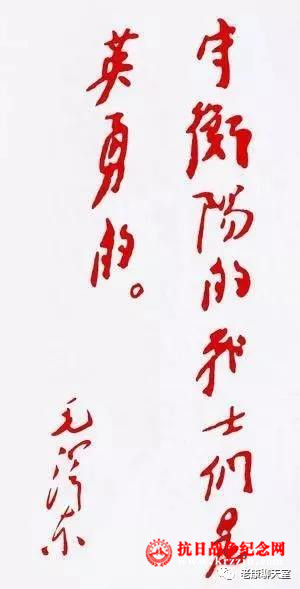 守衡陽的战士们是
英勇的。
毛泽东
抗日战争纪念网
老康聊天室